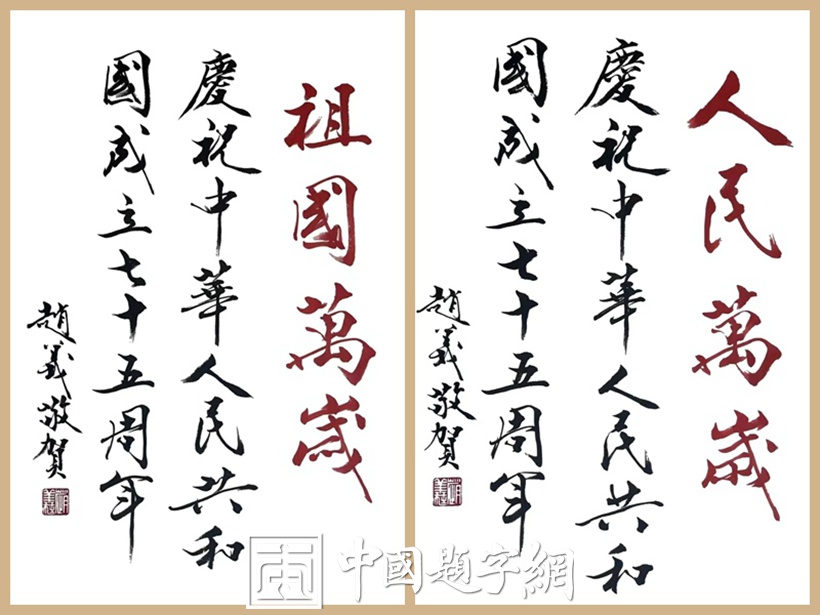 祖國萬歲
慶祝中華人民共和
國成立七十五周年
趙義敬賀
人民萬歲
慶祝中華人民共和
國成立七十五周年
趙義敬賀
中國題字網